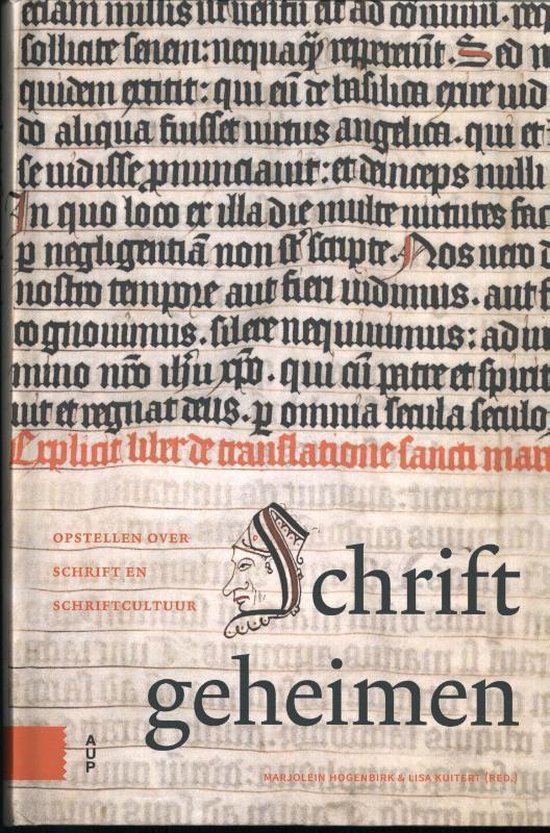 etiam multis iuventu et ad conviv. rep
sollicite senem: nequaq̃ repererũt. Sed n
quidem extitit: qui eũ de basilica exire vid
do aliqua fuisset virtus angelica. qui et
se vidisse pnunciavit: et deinceps nulli
In quo loco ex illa die multe virtutes fac
p negligentiã non st̃ scripte. Nos vero d
nostro tempore aut fieri vidimus. aut f
cognovimus. silere nequivimus: adiu
mino nr̃o ihũ xp̃o. qui cũ patre et spirit
vivit et regnat deus. p omnia secula seculo
Explicit liber de translatione sancti mart
OPSTELLEN OVER
SCHRIFT EN
SCHRIFTCULTUUR
Schrift
geheimen
AUP
MARJOLEIN HOGENBIRK & LISA KUITERT (RED.)